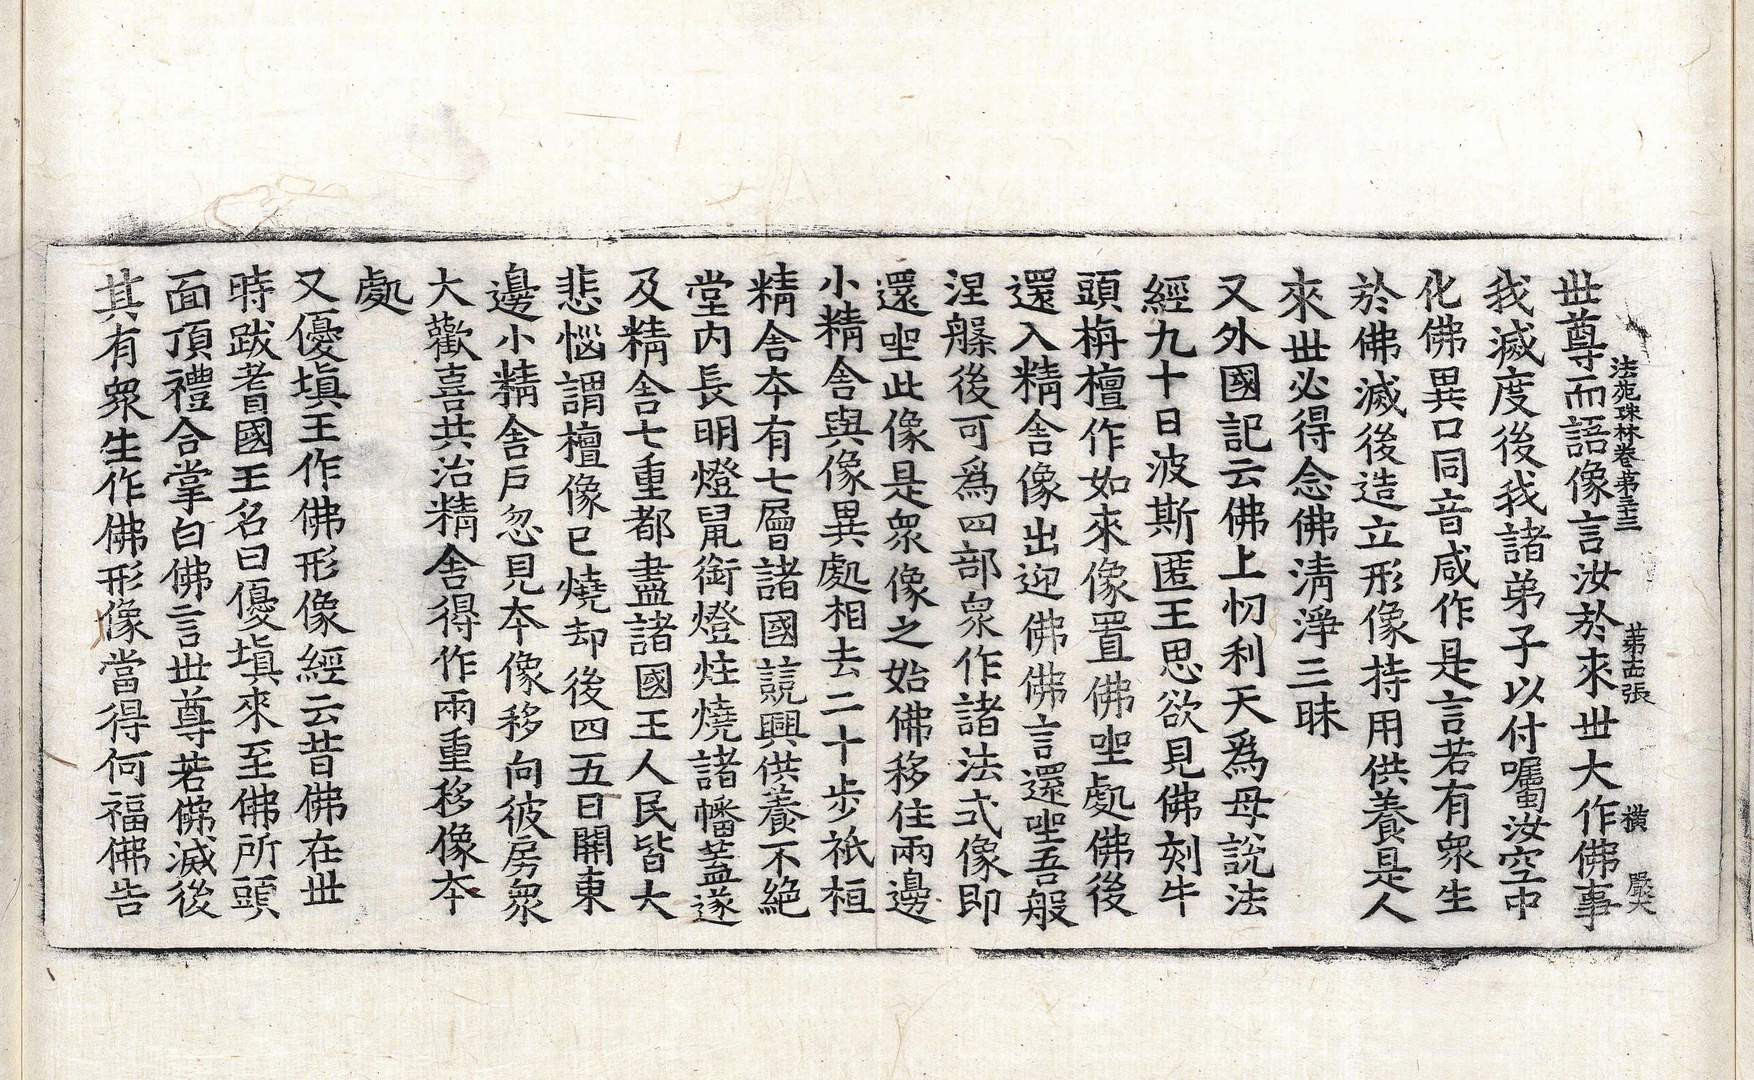 法苑珠林卷第三十三 第十四張 横 嚴大
世尊而語像言汝於來世大作佛事
我滅度後我諸弟子以付囑汝空中
化佛異口同音咸作是言若有衆生
於佛滅後造立形像持用供養是人
來世必得念佛清淨三昧
又外國記云佛上忉利天爲母說法
經九十日波斯匿王思欲見佛刻牛
頭栴檀作如來像置佛坐處佛後
還入精舍像出迎佛佛言還坐吾般
涅槃後可爲四部衆作諸法式像即
還坐此像是衆像之始佛移住兩邊
小精舍與像異處相去二十步祇桓
精舍本有七層諸國競興供養不絶
堂內長明燈鼠銜燈炷燒諸幡蓋遂
及精舍七重都盡諸國王人民皆大
悲惱謂檀像已燒却後四五日開東
邊小精舍戶忽見本像移向彼房衆
大歡喜共治精舍得作兩重移像本
處
又優塡王作佛形像經云昔佛在世
時跋耆國王名曰優塡來至佛所頭
面頂禮合掌白佛言世尊若佛滅後
其有衆生作佛形像當得何福佛告